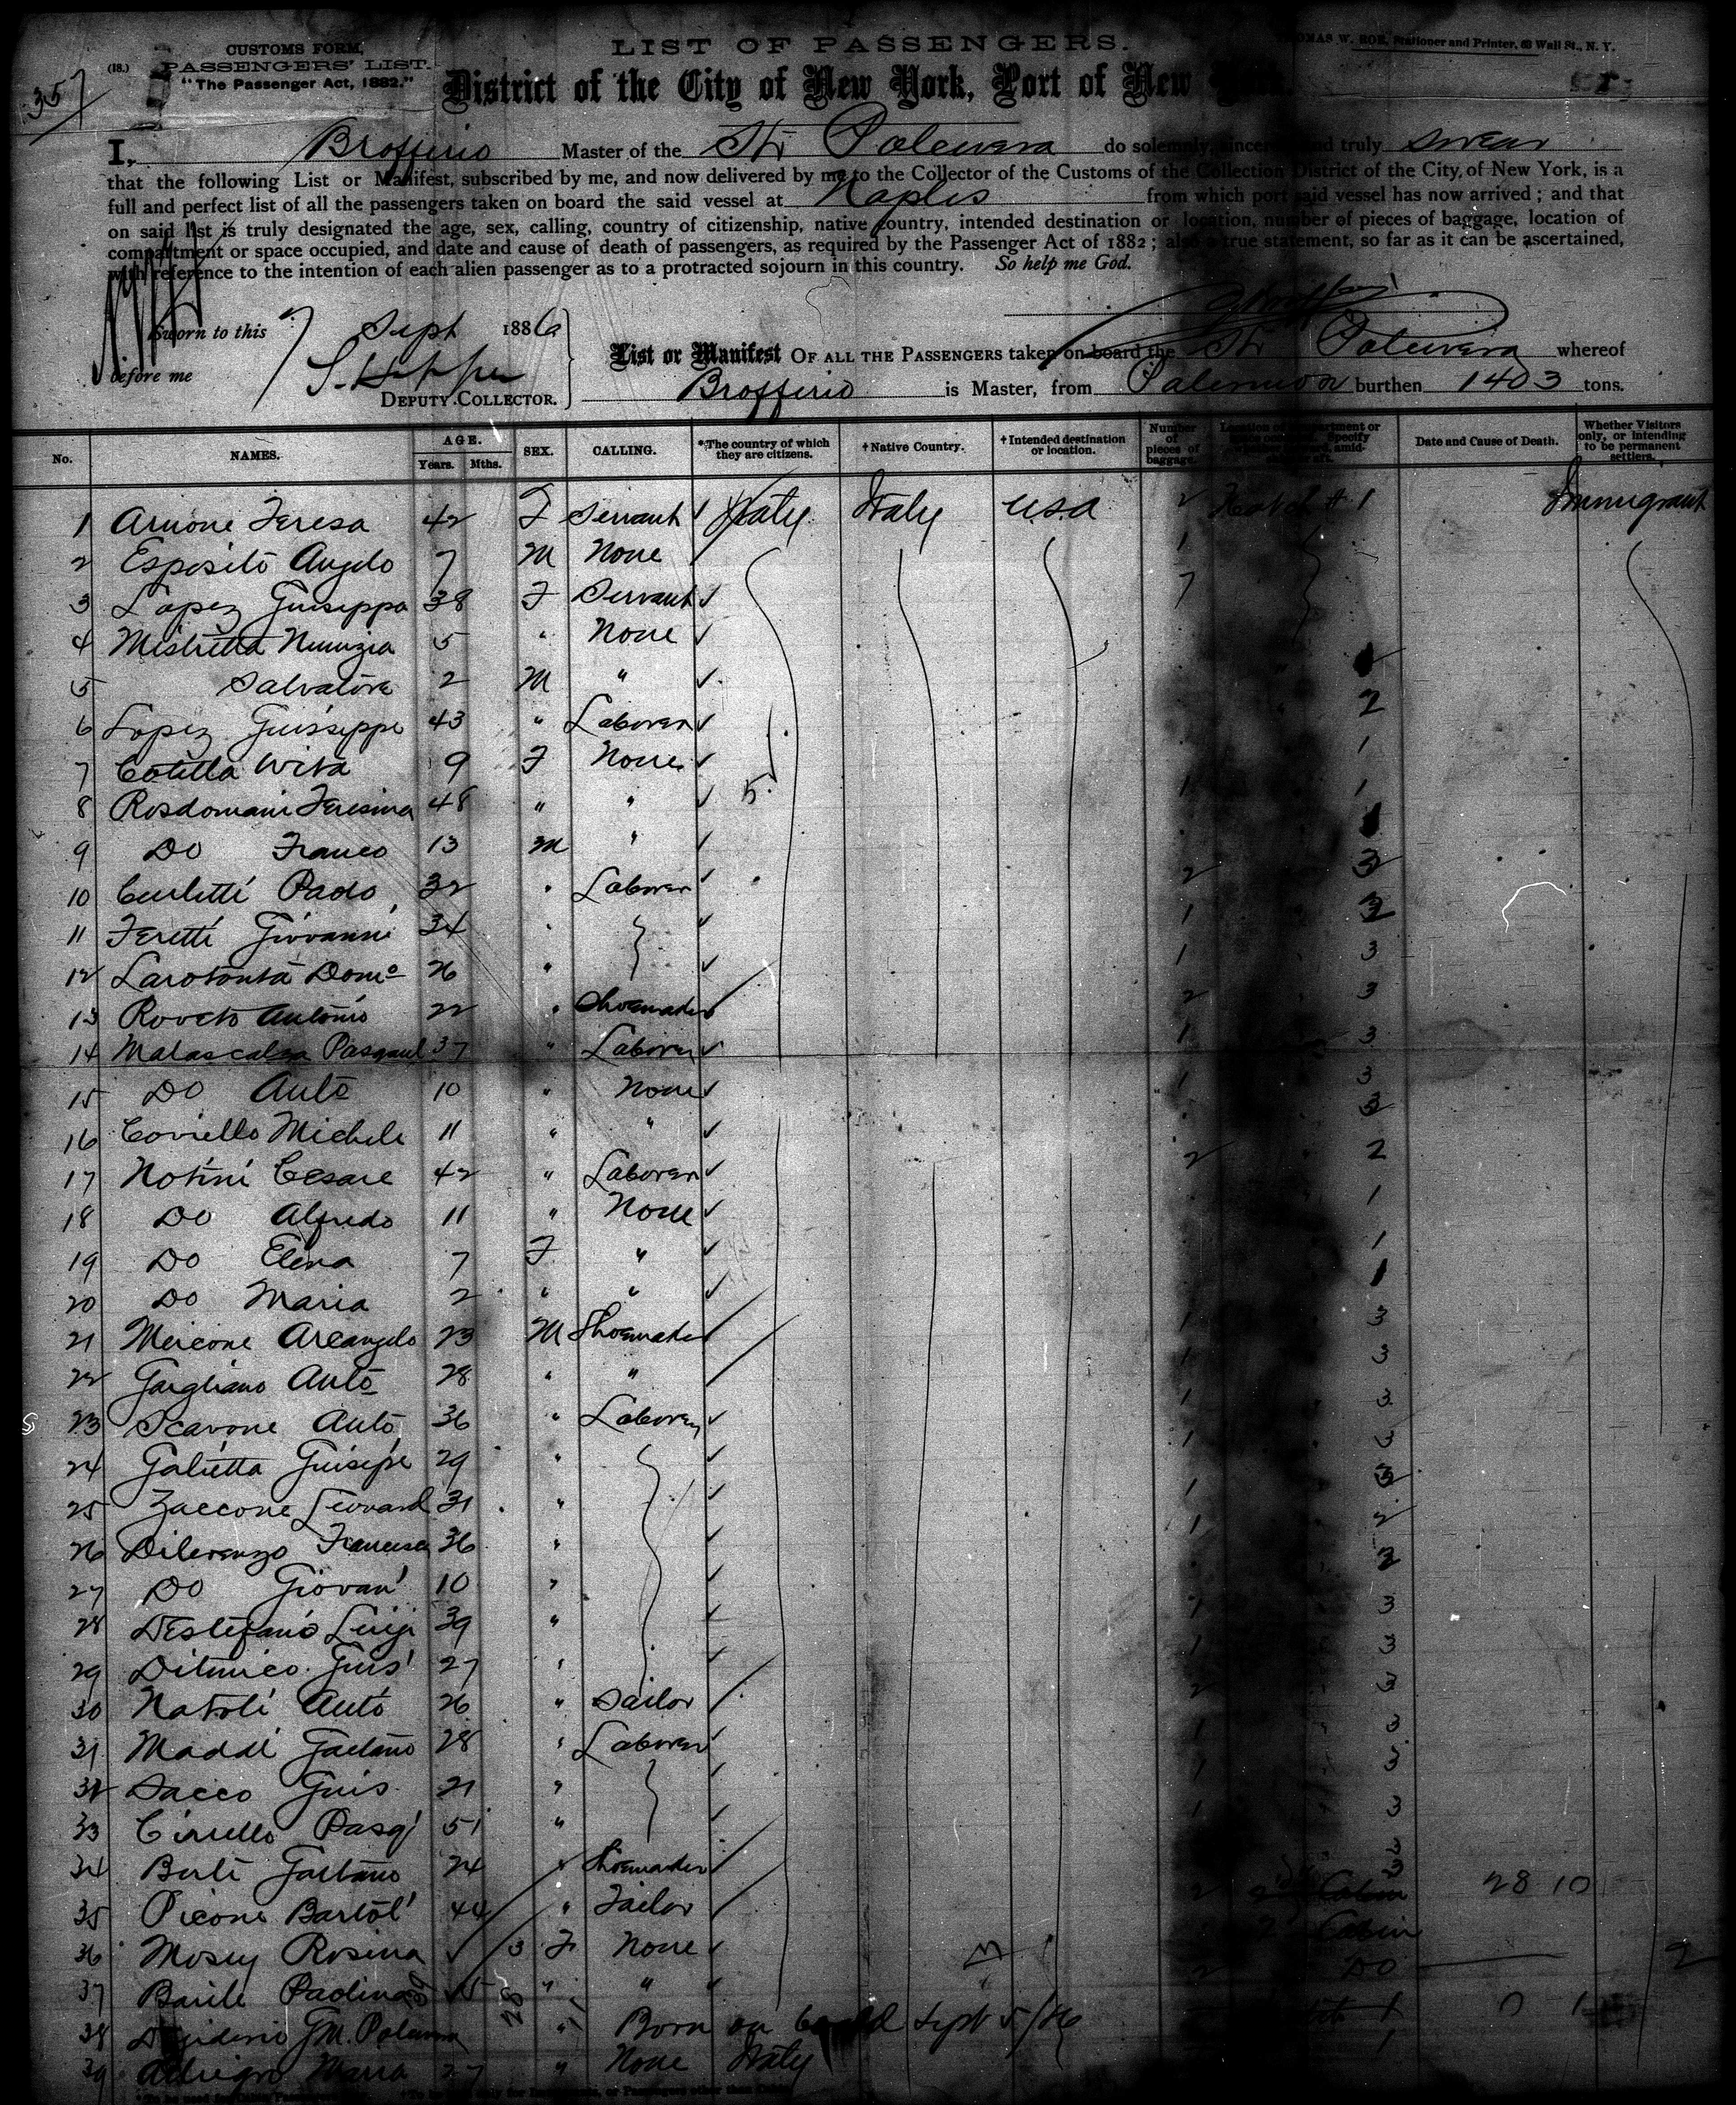 CUSTOMS FORM,
(18.) PASSENGERS' LIST.
"The Passenger Act, 1882."
357
LIST OF PASSENGERS.
THOMAS W. ROE, Stationer and Printer, 69 Wall St., N. Y.
District of the City of New York, Port of New York.
I, Brofferio Master of the Str Polcevera do solemnly, sincerely and truly swear
that the following List or Manifest, subscribed by me, and now delivered by me to the Collector of the Customs of the Collection District of the City, of New York, is a
full and perfect list of all the passengers taken on board the said vessel at Naples from which port said vessel has now arrived ; and that
on said list is truly designated the age, sex, calling, country of citizenship, native country, intended destination or location, number of pieces of baggage, location of
compartment or space occupied, and date and cause of death of passengers, as required by the Passenger Act of 1882 ; also a true statement, so far as it can be ascertained,
with reference to the intention of each alien passenger as to a protracted sojourn in this country. So help me God.
Sworn to this 7 Sept 1886
before me
DEPUTY COLLECTOR.
List or Manifest OF ALL THE PASSENGERS taken on board the Str Polcevera whereof
Brofferio is Master, from Palermo burthen 1403 tons.
No. NAMES. AGE. Years. Mths. SEX. CALLING. *The country of which they are citizens. †Native Country. †Intended destination or location. Number of pieces of baggage. Location of compartment or space occupied. Specify Date and Cause of Death. Whether Visitors only, or intending to be permanent settlers.
1 Arnone Teresa 42 F Servant Italy Italy U.S.A 2 Hatch # 1 Immigrant
2 Esposito Angelo 7 M None 1
3 Lopez Guiseppa 38 F Servant 7
4 Mistretta Nunzia 5 " None
5 Salvatore 2 M "
6 Lopez Guisseppe 43 " Laborer 2
7 Cotilla Wita 9 F None 1
8 Rosdomani Teresina 48 " " 5 1 1
9 Do Franco 13 M "
10 Curletti Paolo 32 " Laborer 2 3
11 Feretti Giovanni 34 " 1 3
12 Larotonta Domo 26 " 1 3
13 Roveto Antonio 22 " Shoemaker 2 3
14 Malascalza Pasqual 37 " Laborer 1 3
15 Do Anto 10 " None 1 3
16 Coviello Michele 11 " " 3
17 Notini Cesare 42 " Laborer 2 2
18 Do Alfredo 11 " None 1
19 Do Elena 7 F " 1
20 Do Maria 2 " " 1
21 Meicone Arcangelo 23 M Shoemaker 1 3
22 Gargliano Anto 28 " " 1 3
23 Scavone Anto 36 " Laborer 1 3
24 Galietta Guisepe 29 " 1 3
25 Zaccone Leonard 31 " 1 3
26 Dilorenzo Francesco 36 " 1 2
27 Do Giovan' 10 "
28 DEstefano Luigi 39 " 1 3
29 Guis' 27 " 1 3
30 Natoli Anto 26 " Sailor 2 3
31 Maddi Gaetano 28 " Laborer 1 3
32 Sacco Guis 21 " 1 3
33 Cirrello Pasq' 51 " 1 3
34 Berti Gaetano 24 " Shoemaker 3
35 Picone Bartol' 44 " Tailor 2 Cabin 28 10
36 Mosey Rosina 3 F None Cabin
37 Barile Paolina " " 2 Do 2
38 " Born on board Sept 5/86 0 1
39 Maria 27 " None Italy 1